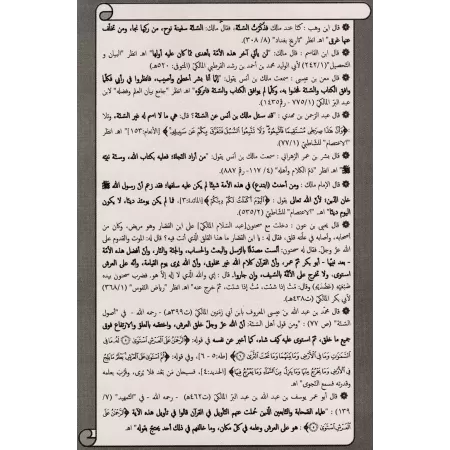 ۞ قال ابن وهب : كنا عند مالك فذُكِرَتُ السُّنَّة، فقال مالك: السُّنَّة سفينة نوح، من ركبها نجا، ومن تخلَّف
عنها غرق" اهـ انظر "تاريخ بغداد" (٨/ ٣٠٨).
۞ قال ابن القاسم : قال مالك: "لن يأتي آخر هذه الأمة بأهدى ممّا كان عليه أولها" اهـ انظر "البيان و
التحصيل"(١/٢٤٢) لأبي الوليد محمد بن أحمد بن رشد القرطبي المالكيّ (المتوفى: ٥٢٠هـ)
۞ قال معن بن عيسى : سمعت مالك بن أنس يقول: "إنَّما أنا بشر أخطئ وأصيب، فانظروا في رأيي فكلّما
وافق الكتاب والسُّنة فخذوا به، وكلّما لم يوافق الكتاب والسُّنة فاتركوه" اهـ انظر "جامع بيان العلم وفضله" لابن
عبد البّر المالكيّ (١/٧٧٥- رقم١٤٣٥).
۞ قال عبد الرحمن بن مهدي : قد سئل مالك بن أنس عن السُّنة؟ قال: هي ما لا اسم له غير السُّنة، وتلا
﴿وَأَنَّ هَٰذَا صِرَاطِي مُسْتَقِيمًا فَاتَّبِعُوهُ وَلَا تَتَّبِعُوا السُّبُلَ فَتَفَرَّقَ بِكُمْ عَن سَبِيلِهِ﴾ [الأنعام:١٥٣]" اهـ انظر
"الاعتصام" للشّاطبيّ (١/٧٧).
۞ قال بشر بن عمر الزهراني : سمعت مالك بن أنس يقول: "من أراد النجاة؛ فعليه بكتاب الله، وسنّة نبيّه
ﷺ" اهـ انظر "ذمّ الكلام وأهله" (٤/ ١١٧- رقم ٨٨٧).
۞ قال الإمام مالك : ومن أحدث (ابتدع) في هذه الأمة شيئًا لم يكن عليه سلفها؛ فقد زعم أنّ رسول الله ﷺ
خان الدّين؛ لأنَّ الله تعالى يقول : ﴿الْيَوْمَ أَكْمَلْتُ لَكُمْ دِينَكُمْ﴾ [المائدة:٣]، فما لم يكن يومئذ دينًا، لا يكون
اليوم دينًا" اهـ "الاعتصام" للشّاطبيّ (٢/٥٣٥).
۞ قال يحيى بن عون : دخلت مع سحنون[عبد السلام المالكيّ] على ابن القصّار وهو مريض، وكان من
أصحابه، وأصابه في علّته قلق. فقال له : يا ابن القصّار ما هذا القلق الّذي أنت فيه؟ قال له: الموت والقدوم على
الله عزّ وجلّ، فقال له سحنون: ألست مصدّقًا بالرّسل والبعث والحساب، والجنّة والنّار، وأنّ أفضل هذه الأمّة
- بعد نبيّها - أبو بكر ثمّ عمر، وأنّ القرآن كلام الله غير مخلوق، وأنّ الله يرى يوم القيامة، وأنّه على العرش
استوى، ولا تخرج على الأئمّة بالسّيف، وإن جاروا. قال : إي والله الّذي لا إله إلّا هو. فضرب سحنون بيده
وقال: مُتْ إذا شئت، مُتْ إذا شئت. ثمّ خرج عنه" اهـ انظر "رياض النّفوس" (١/٣٦٨)
لأبي بكر المالكيّ (ت٤٣٨هـ).
۞ قال محمد بن عبد الله بن عيسى المعروف بابن أبي زمنين المالكيّ (ت٣٩٩هـ) - رحمه الله - في "أصول
السُّنة" (ص ٧٧) : "ومن قول أهل السُّنة: أنّ الله عزّ وجلّ خلق العرش، واختصّه بالعلوّ والارتفاع فوق
جميع ما خلق، ثمّ استوى عليه كيف شاء، كما أخبر عن نفسه في قوله: ﴿الرَّحْمَٰنُ عَلَى الْعَرْشِ اسْتَوَىٰ ۝ لَهُ مَا فِي
السَّمَاوَاتِ وَمَا فِي الْأَرْضِ وَمَا بَيْنَهُمَا وَمَا تَحْتَ الثَّرَىٰ ۝﴾ [طه:٥ - ٦]، وفي قوله: ﴿ثُمَّ اسْتَوَىٰ عَلَى الْعَرْشِ يَعْلَمُ مَا يَلِجُ
فِي الْأَرْضِ وَمَا يَخْرُجُ مِنْهَا وَمَا يَنزِلُ مِنَ السَّمَاءِ وَمَا يَعْرُجُ فِيهَا﴾ [الحديد:٤]، فسبحان من بعُد فلا يُرى، وقرُب بعلمه
وقدرته فسمع النّجوى" اهـ
۞ قال أبو عمر يوسف بن عبد الله بن عبد البّر المالكيّ (ت٤٦٣هـ) - رحمه الله - في "التّمهيد" (٧/
١٣٩) : "علماء الصّحابة والتّابعين الّذين حُملت عنهم التّأويل في القرآن قالوا في تأويل هذه الآية ﴿الرَّحْمَٰنُ عَلَى
الْعَرْشِ اسْتَوَىٰ ۝﴾ : هو على العرش وعلمه في كلّ مكان، وما خالفهم في ذلك أحد يحتجّ بقوله" اهـ